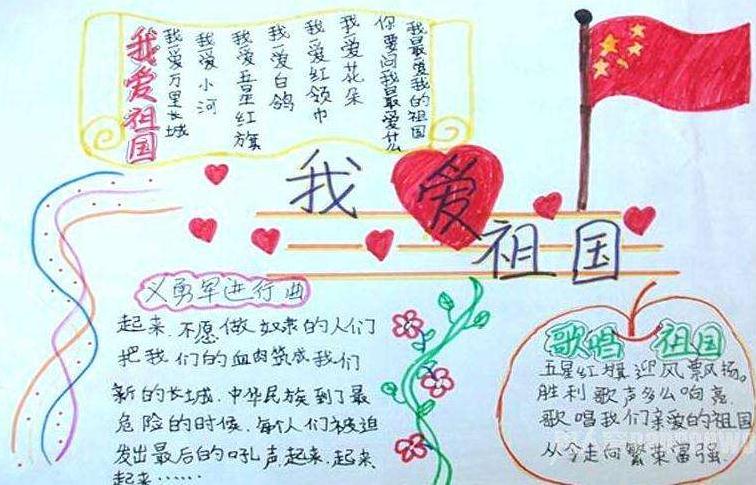 我爱祖国
我爱万里长城
我爱小河
我爱五星红旗
我爱白鸽
我爱红领巾
我爱花朵
你要问我最爱什么
我最爱我的祖国
我爱祖国
义勇军进行曲
起来,不愿做奴隶的人们
把我们的血肉筑成我们
新的长城,中华民族到了最
危险的时候,每人们被迫
发出最后的吼声起来,起来,
起来……
歌唱 祖国
五星红旗迎风飘扬。
胜利歌声多么响亮
歌唱我们亲爱的祖国
从今走向繁荣富强